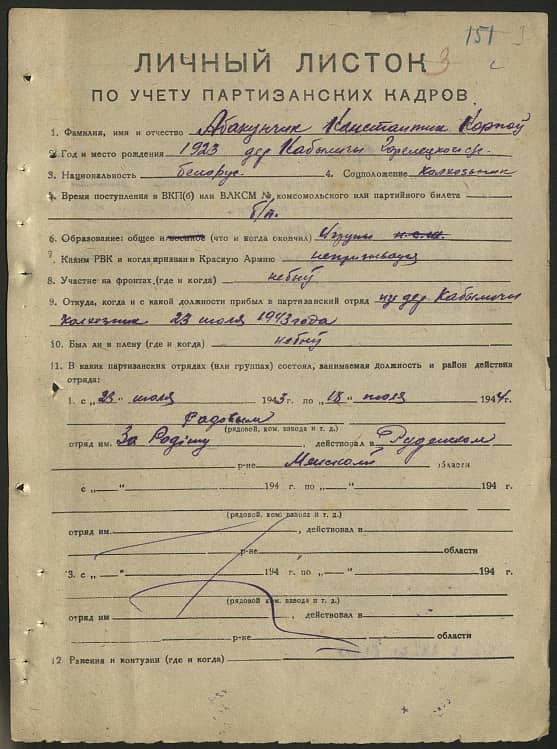 151
3
ЛИЧНЫЙ ЛИСТОК
ПО УЧЕТУ ПАРТИЗАНСКИХ КАДРОВ
1. Фамилия, имя и отчество Абакунчик Константин Карпов
2. Год и место рождения 1923 дер Кабыличи
3. Национальность белорус 4. Соцположение колхозник
5. Время поступления в ВКП(б) или ВЛКСМ № комсомольского или партийного билета
б/п.
6. Образование: общее и военное (что и когда окончил)
7. Каким РВК и когда призван в Красную Армию
8. Участие на фронтах (где и когда) небыў
9. Откуда, когда и с какой должности прибыл в партизанский отряд из дер. Кабыличи
колхозник 23 июля 1943 года
10. Был ли в плену (где и когда) небыў
11. В каких партизанских отрядах (или группах) состоял, занимаемая должность и район действия
отряда:
1. с „23“ июля 1943 г. по „18“ июля 1944 г.
Радовым
(рядовой, ком. взвода и т. д.)
отряд им. За Родіму, действовал в Руденском
р-не Менской области
с „—“ 194 г. по „—“ 194 г.
(рядовой, ком. взвода и т. д.)
отряд им. , действовал в
р-не области
3. с „—“ 194 г. по „—“ 194 г.
(рядовой, ком. взвода и т. д.)
отряд им , действовал в
р-не области
12. Ранения и контузии (где и когда)